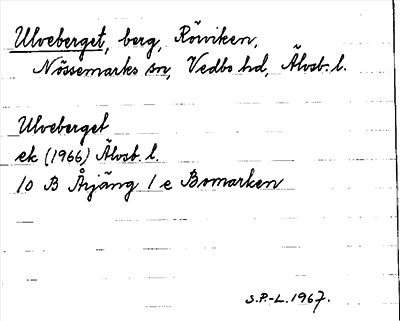 Ulveberget, berg, Röiviken,
Nössemarks sn, Vedbo hd, Älvsb. l.
Ulveberget
ek (1966) Älvsb. l.
10 B Årjäng 1 e Bomarken
S.P.-L. 1967.